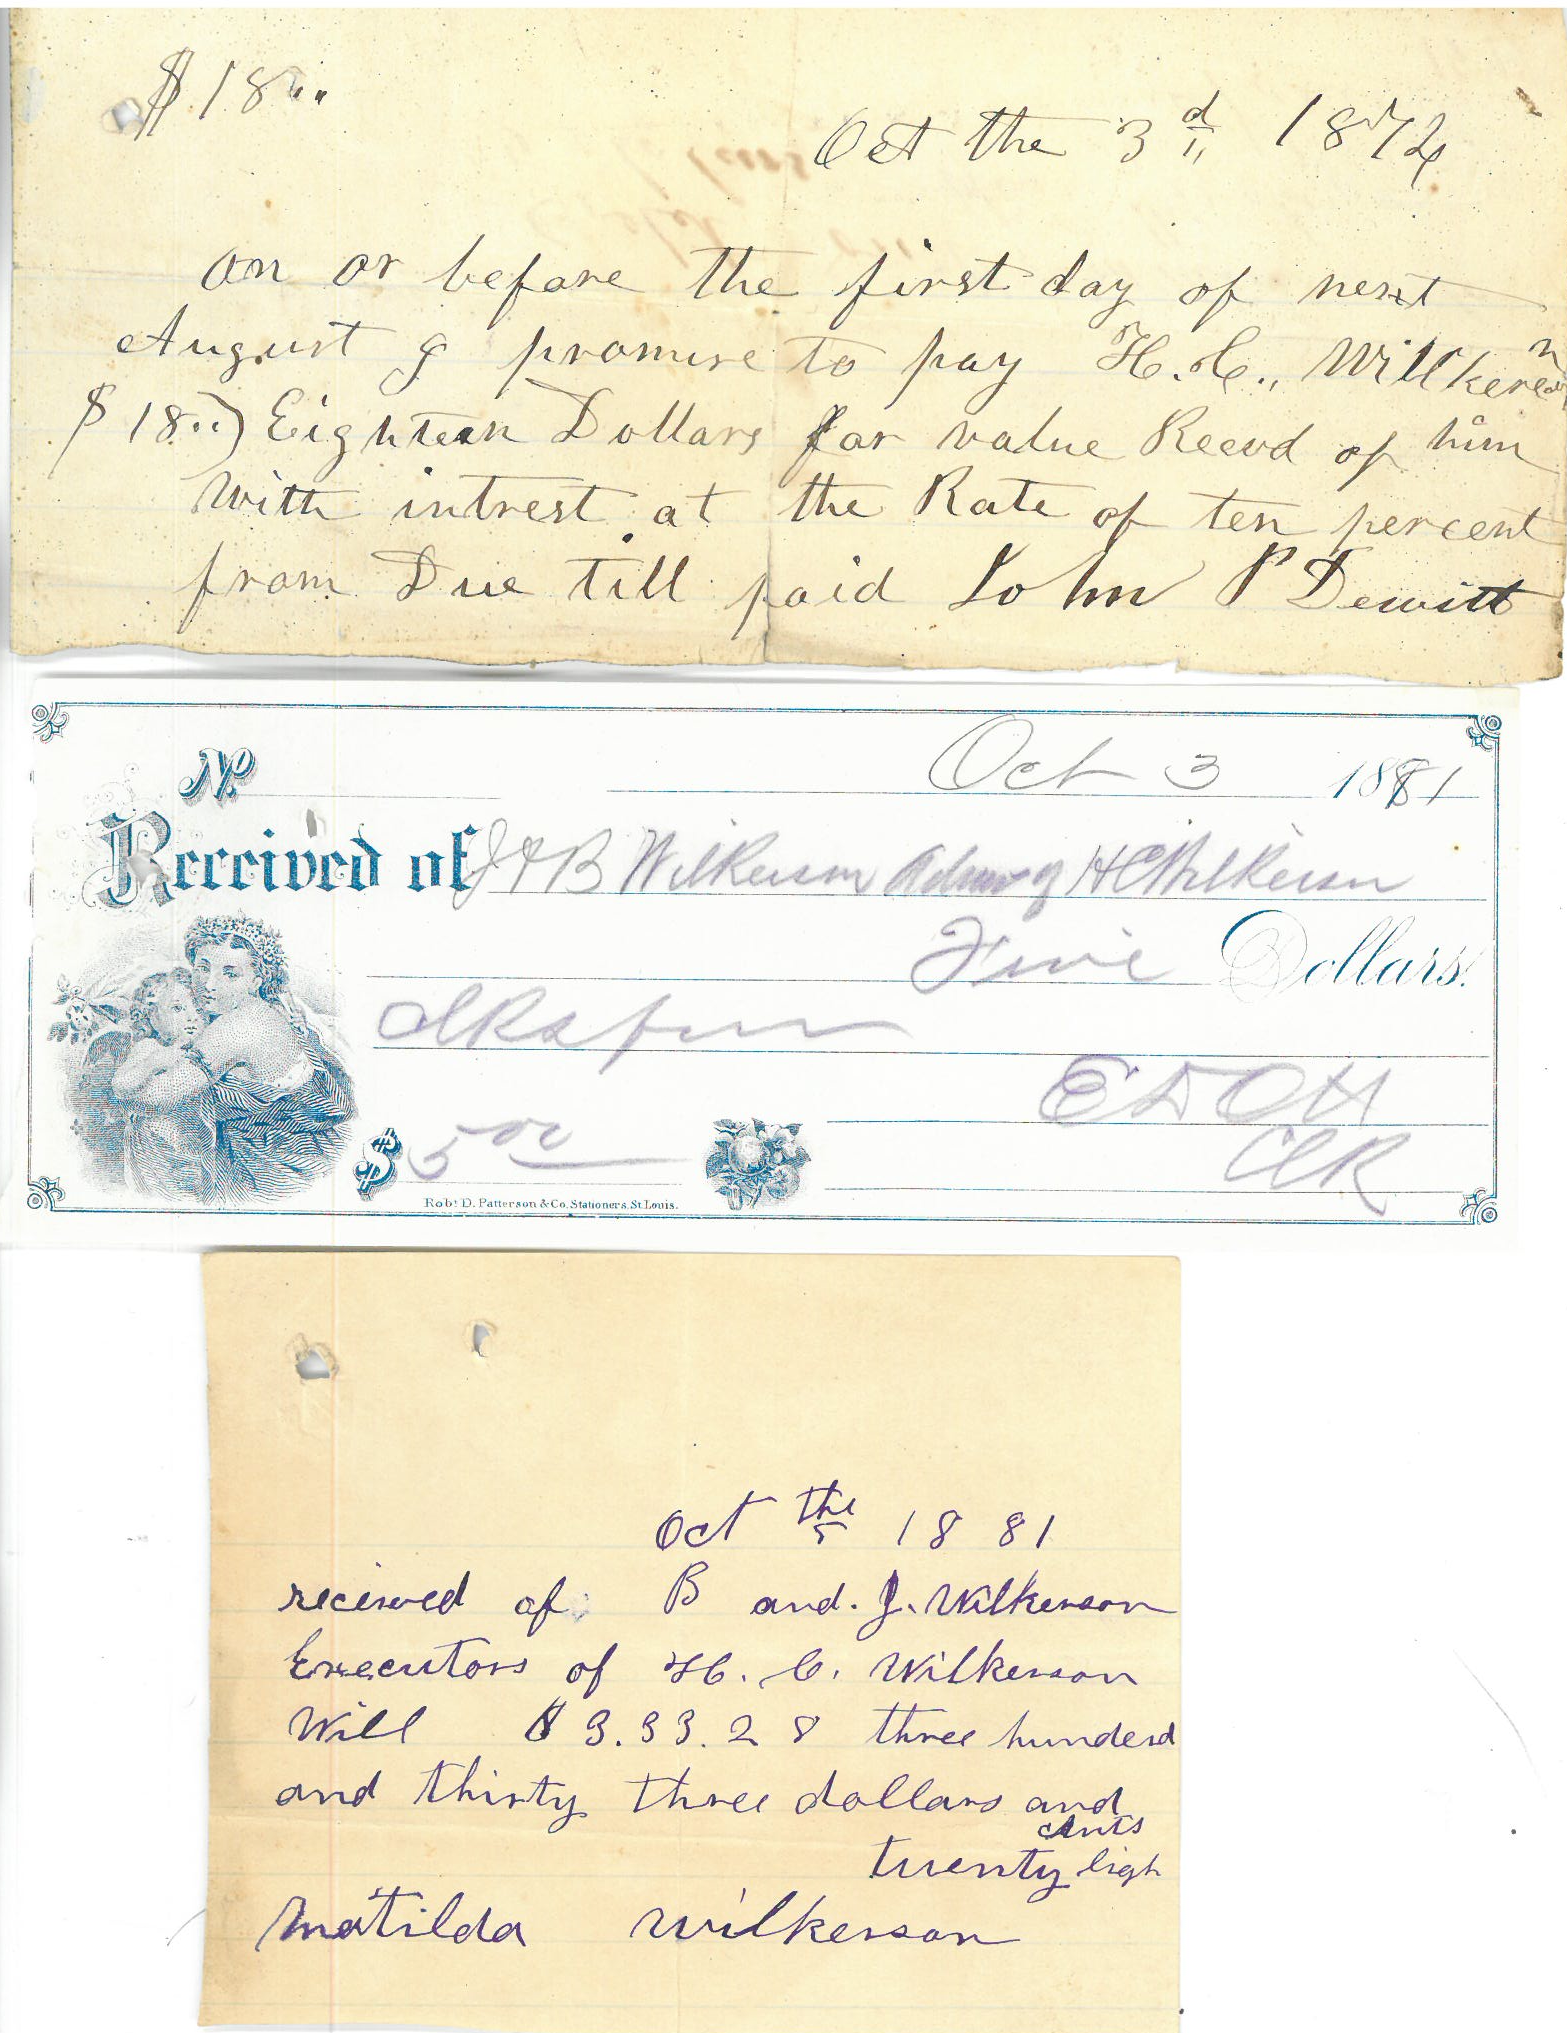 $18..
Oct the 3d 1874
on or before the first day of next
August I promise to pay H. C., Wilkerson
$18..) Eighteen Dollars for value Recvd of him
with intrest at the Rate of ten percent
from Due till paid John P Dewitt
No. Oct 3 1881
Received of J & B Wilkerson Admrs of H C Wilkerson
Five Dollars.
Clks fees
E D Ott
Clk
$ 5 00
Robt. D. Patterson & Co. Stationers, St. Louis.
Oct the 5 1881
recieved of B and. J. Wilkerson
Executors of H. C. Wilkerson
Will $ 3.33.28 three hunderd
and thirty three dollars and
cents
twenty eigh
Matilda Wilkerson